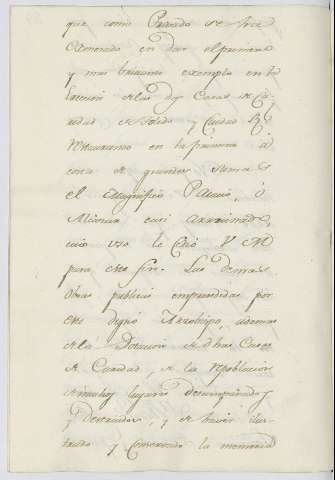 que como Prelado se há
esmerado en dar el primero
y mas brillante exemplo en la
ereccion de las dos Casas de Ca-
ridad de Toledo y Ciudad Rl.
restaurando en la primera á
costa de grandes sumas
el magnifico Palacio, ó
Alcazar casi arruinado,
cuio uso le cedió V M
para este fin. Las demas
obras publicas emprendidas por
este digno Arzobispo, ademas
de la Dotacion de dhas Casas
de Caridad, de la repoblacion
de muchos lugares desamparados
y destruidos, y de haver ilus-
trado y conservado la memoria